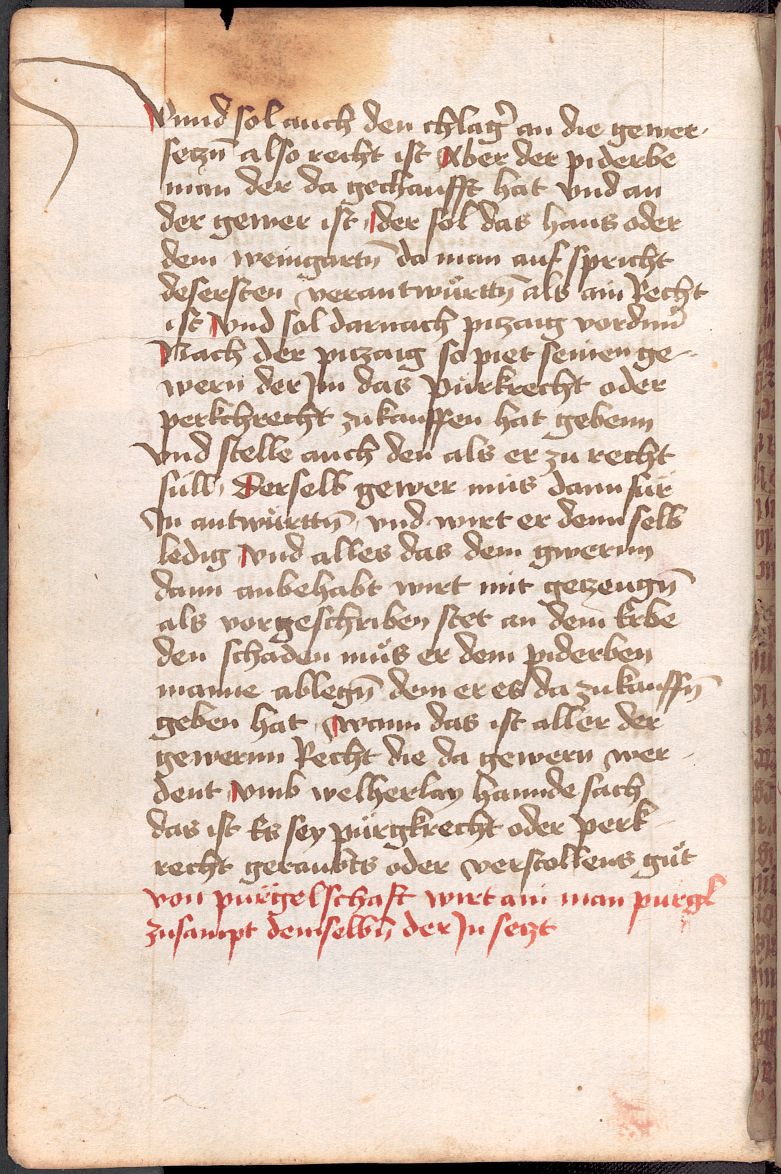 Vnnd sol auch den chlag̕ an die gewer
seczn̄ also recht ist Aber der piderbe
man der da gechaufft hat vnd an
der gewer ist der sol das haus oder
dem weingartn̄ da man auf spricht
desersten verantwürttn̄ als ain Recht
ist Vnd sol darnach piczaig vordnn̄
Nach der piczaig so piet seinen ge-
wern der Im das purkrecht oder
perkchrecht zukauffen hat gebenn
vnd stelle auch den als er zu recht
süll Derselb gewer mus dann für
In antwürttn̄ vnd wirt er denn selb
ledig vnd alles das dem gwernn
dann anbehabt wirt mit geczeugn̄
als vorgeschriben stet an dem Erbe
den schaden müs er dem piderben
manne ablegn̄ dem er es da zukauffn̄
geben hat wann das ist aller der
gewernn Recht die da gewern wer-
dent vmb welherlay hannde sach
das ist Es sey pürgkrecht oder perk-
recht geraubts oder verstollens güt
von pürgelschaft wirt ain man purgl
zusampt demselbn̄ der In seczt